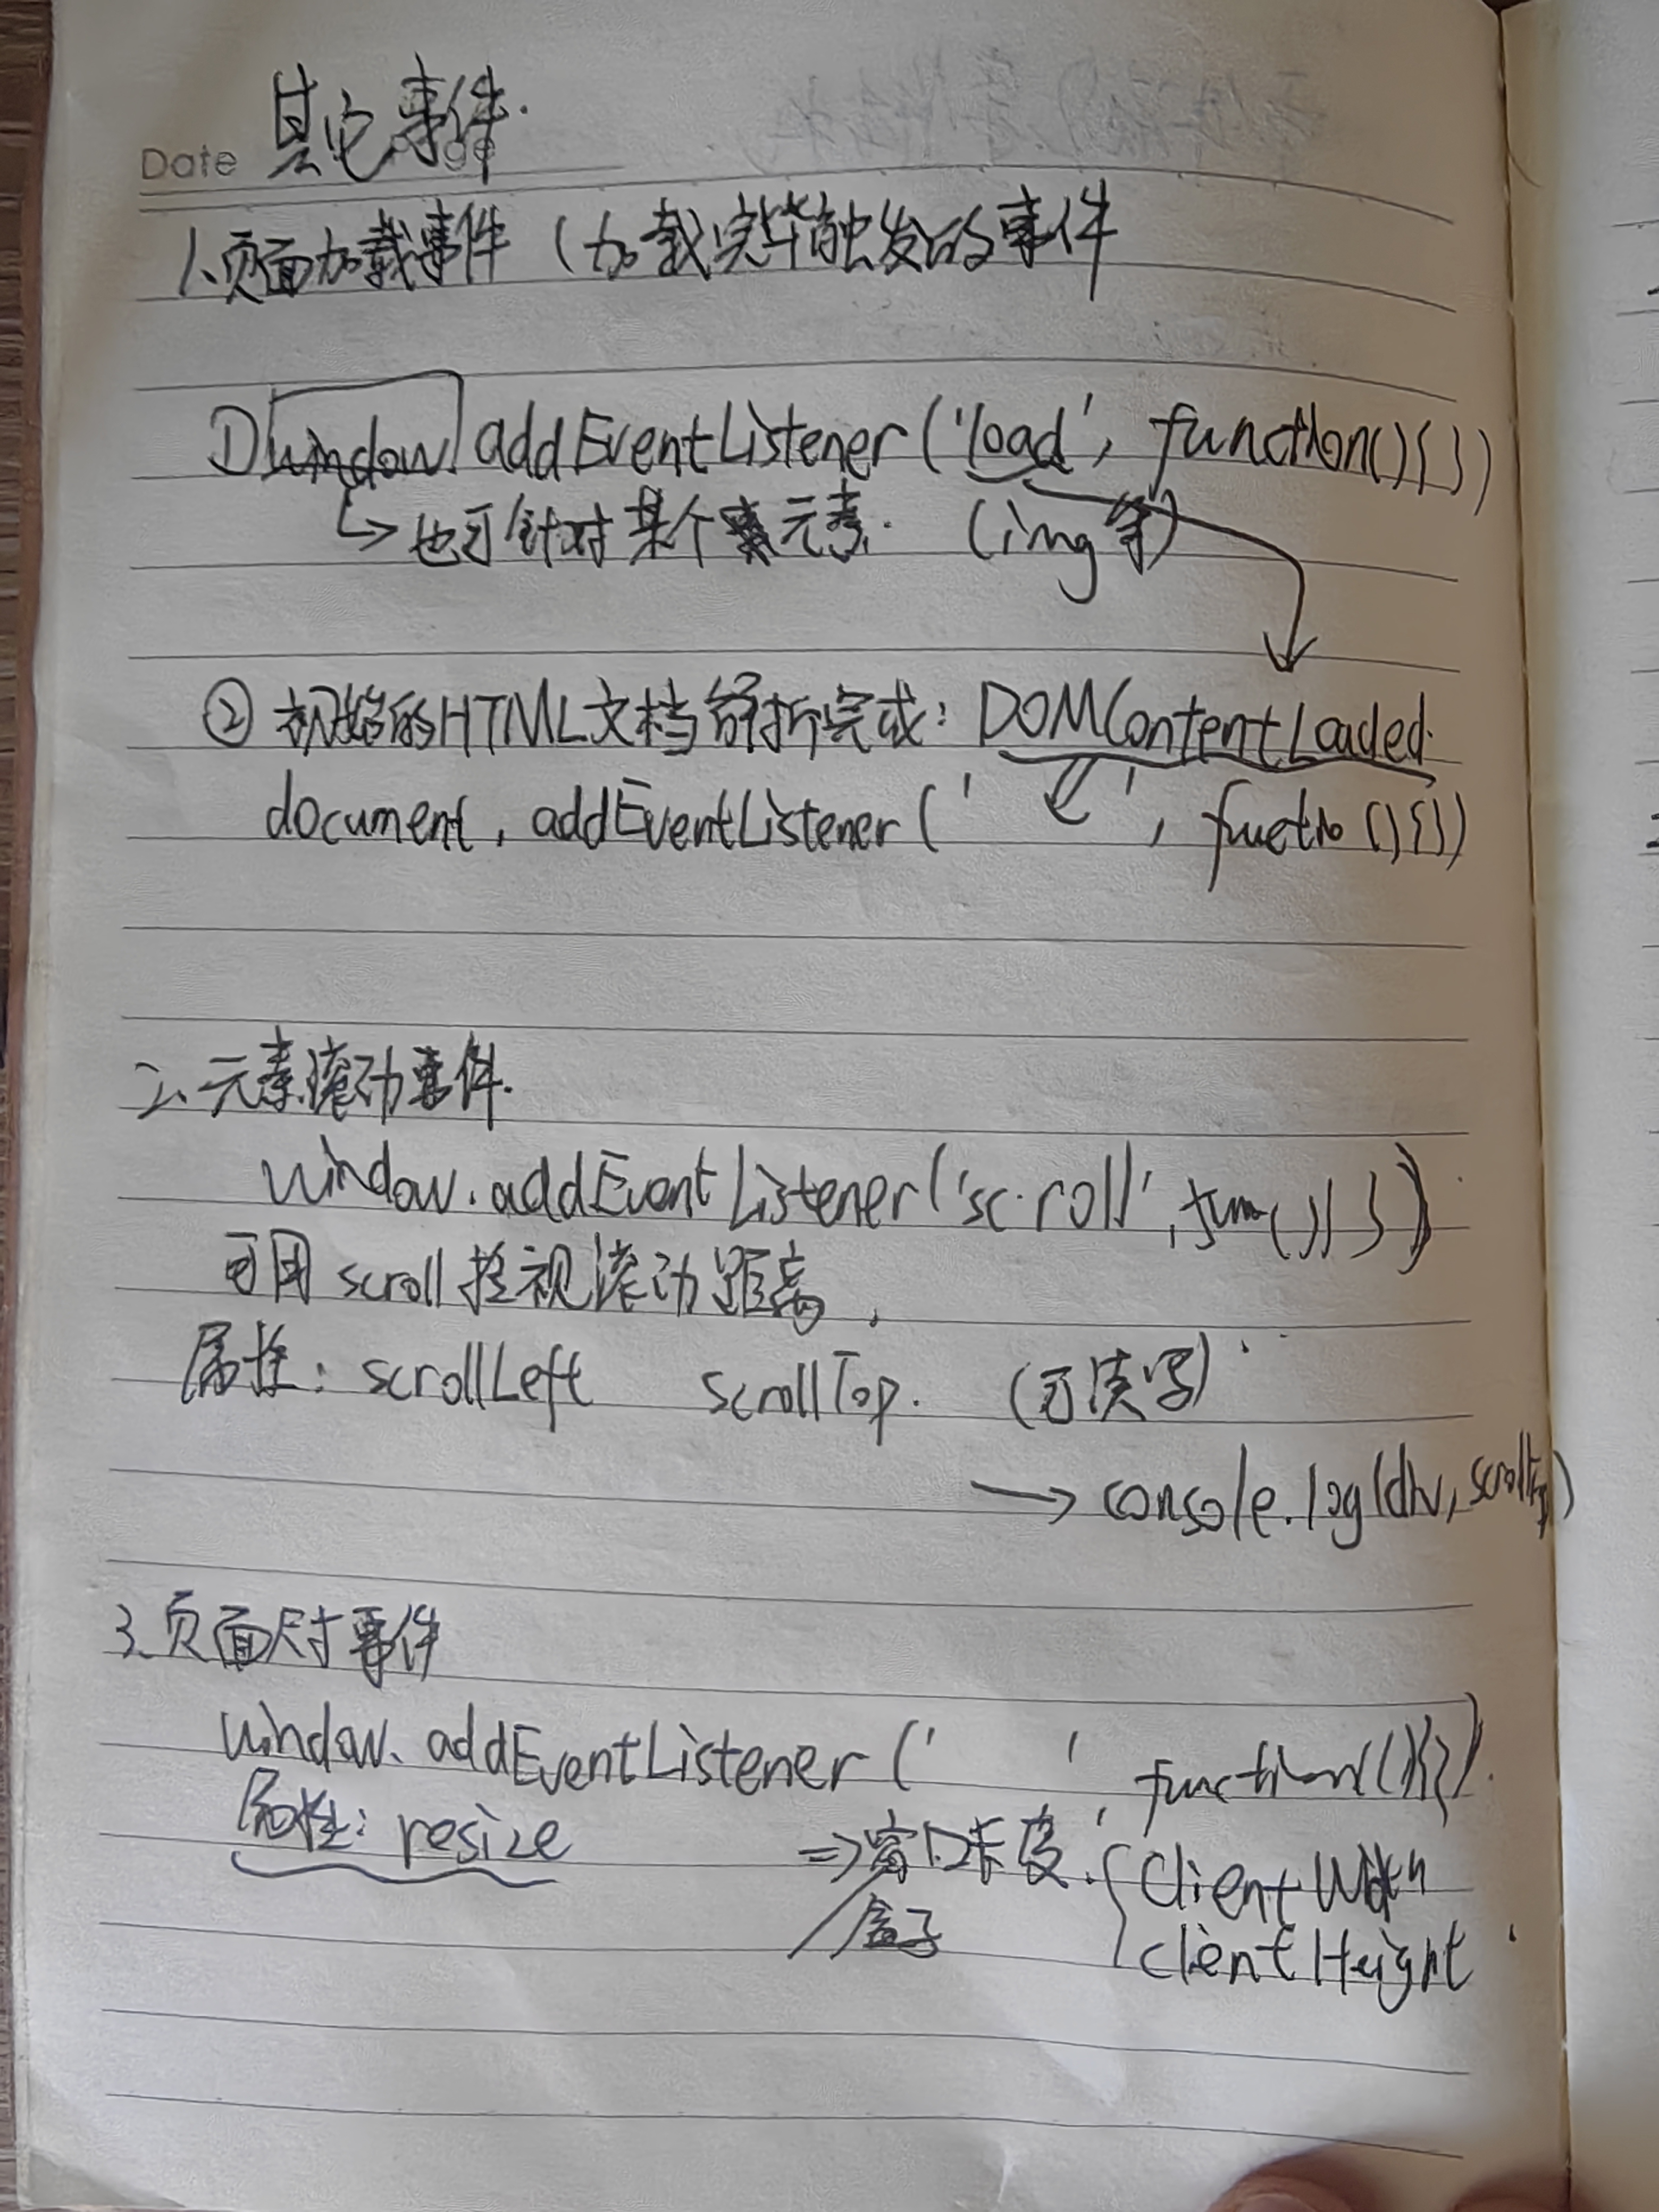 其它事件.
Date Page
1、页面加载事件 (加载完毕触发的事件
① window addEventListener('load', function(){})
↳ 也可针对某个元素. (img等)
② 初始的HTML文档解析完成: DOMContentLoaded.
document, addEventListener(' ', functio(){})
2、元素滚动事件.
window.addEventListener('scroll', fun(){})
可用scroll检视滚动距离,
属性: scrollLeft scrollTop. (可读写)
→ console.log(div, scrollTop)
3、页面尺寸事件
window. addEventListener(' ' function(){}).
属性: resize
⇒ 窗口长度. { ClientWidth
盒子
clientHeight